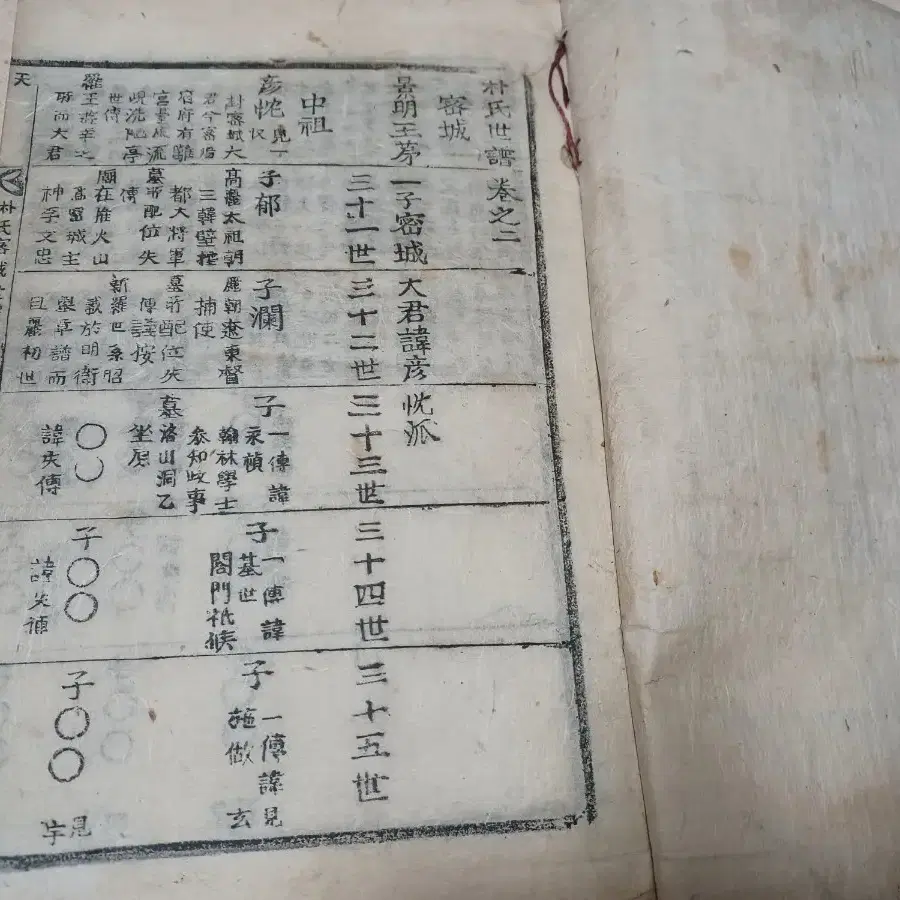 朴氏世譜卷之二
密城
景明王第一子密城大君諱彦忱派
中祖
三十一世
三十二世
三十三世
三十四世
三十五世
彦忱
封密城大
君今密陽
世傳
羅王游幸之
所而大君
子郁
高麗太祖朝
三韓壁控
都大將軍
墓所配位失
傳
廟在推火山
爲密城主
神李文忠
子瀾
麗朝遼東督
捕使
墓所配位失
傳謹按
新羅世系昭
載於明衛
且麗初世
子
一傳諱
永禎
翰林學士
參知政事
墓洛山洞乙
坐原
〇〇
諱失傳
子
一傳諱
基世
閤門祗候
子〇〇
諱失傳
子
一傳諱見
施做玄
子〇〇
見
宇
天
朴氏密城